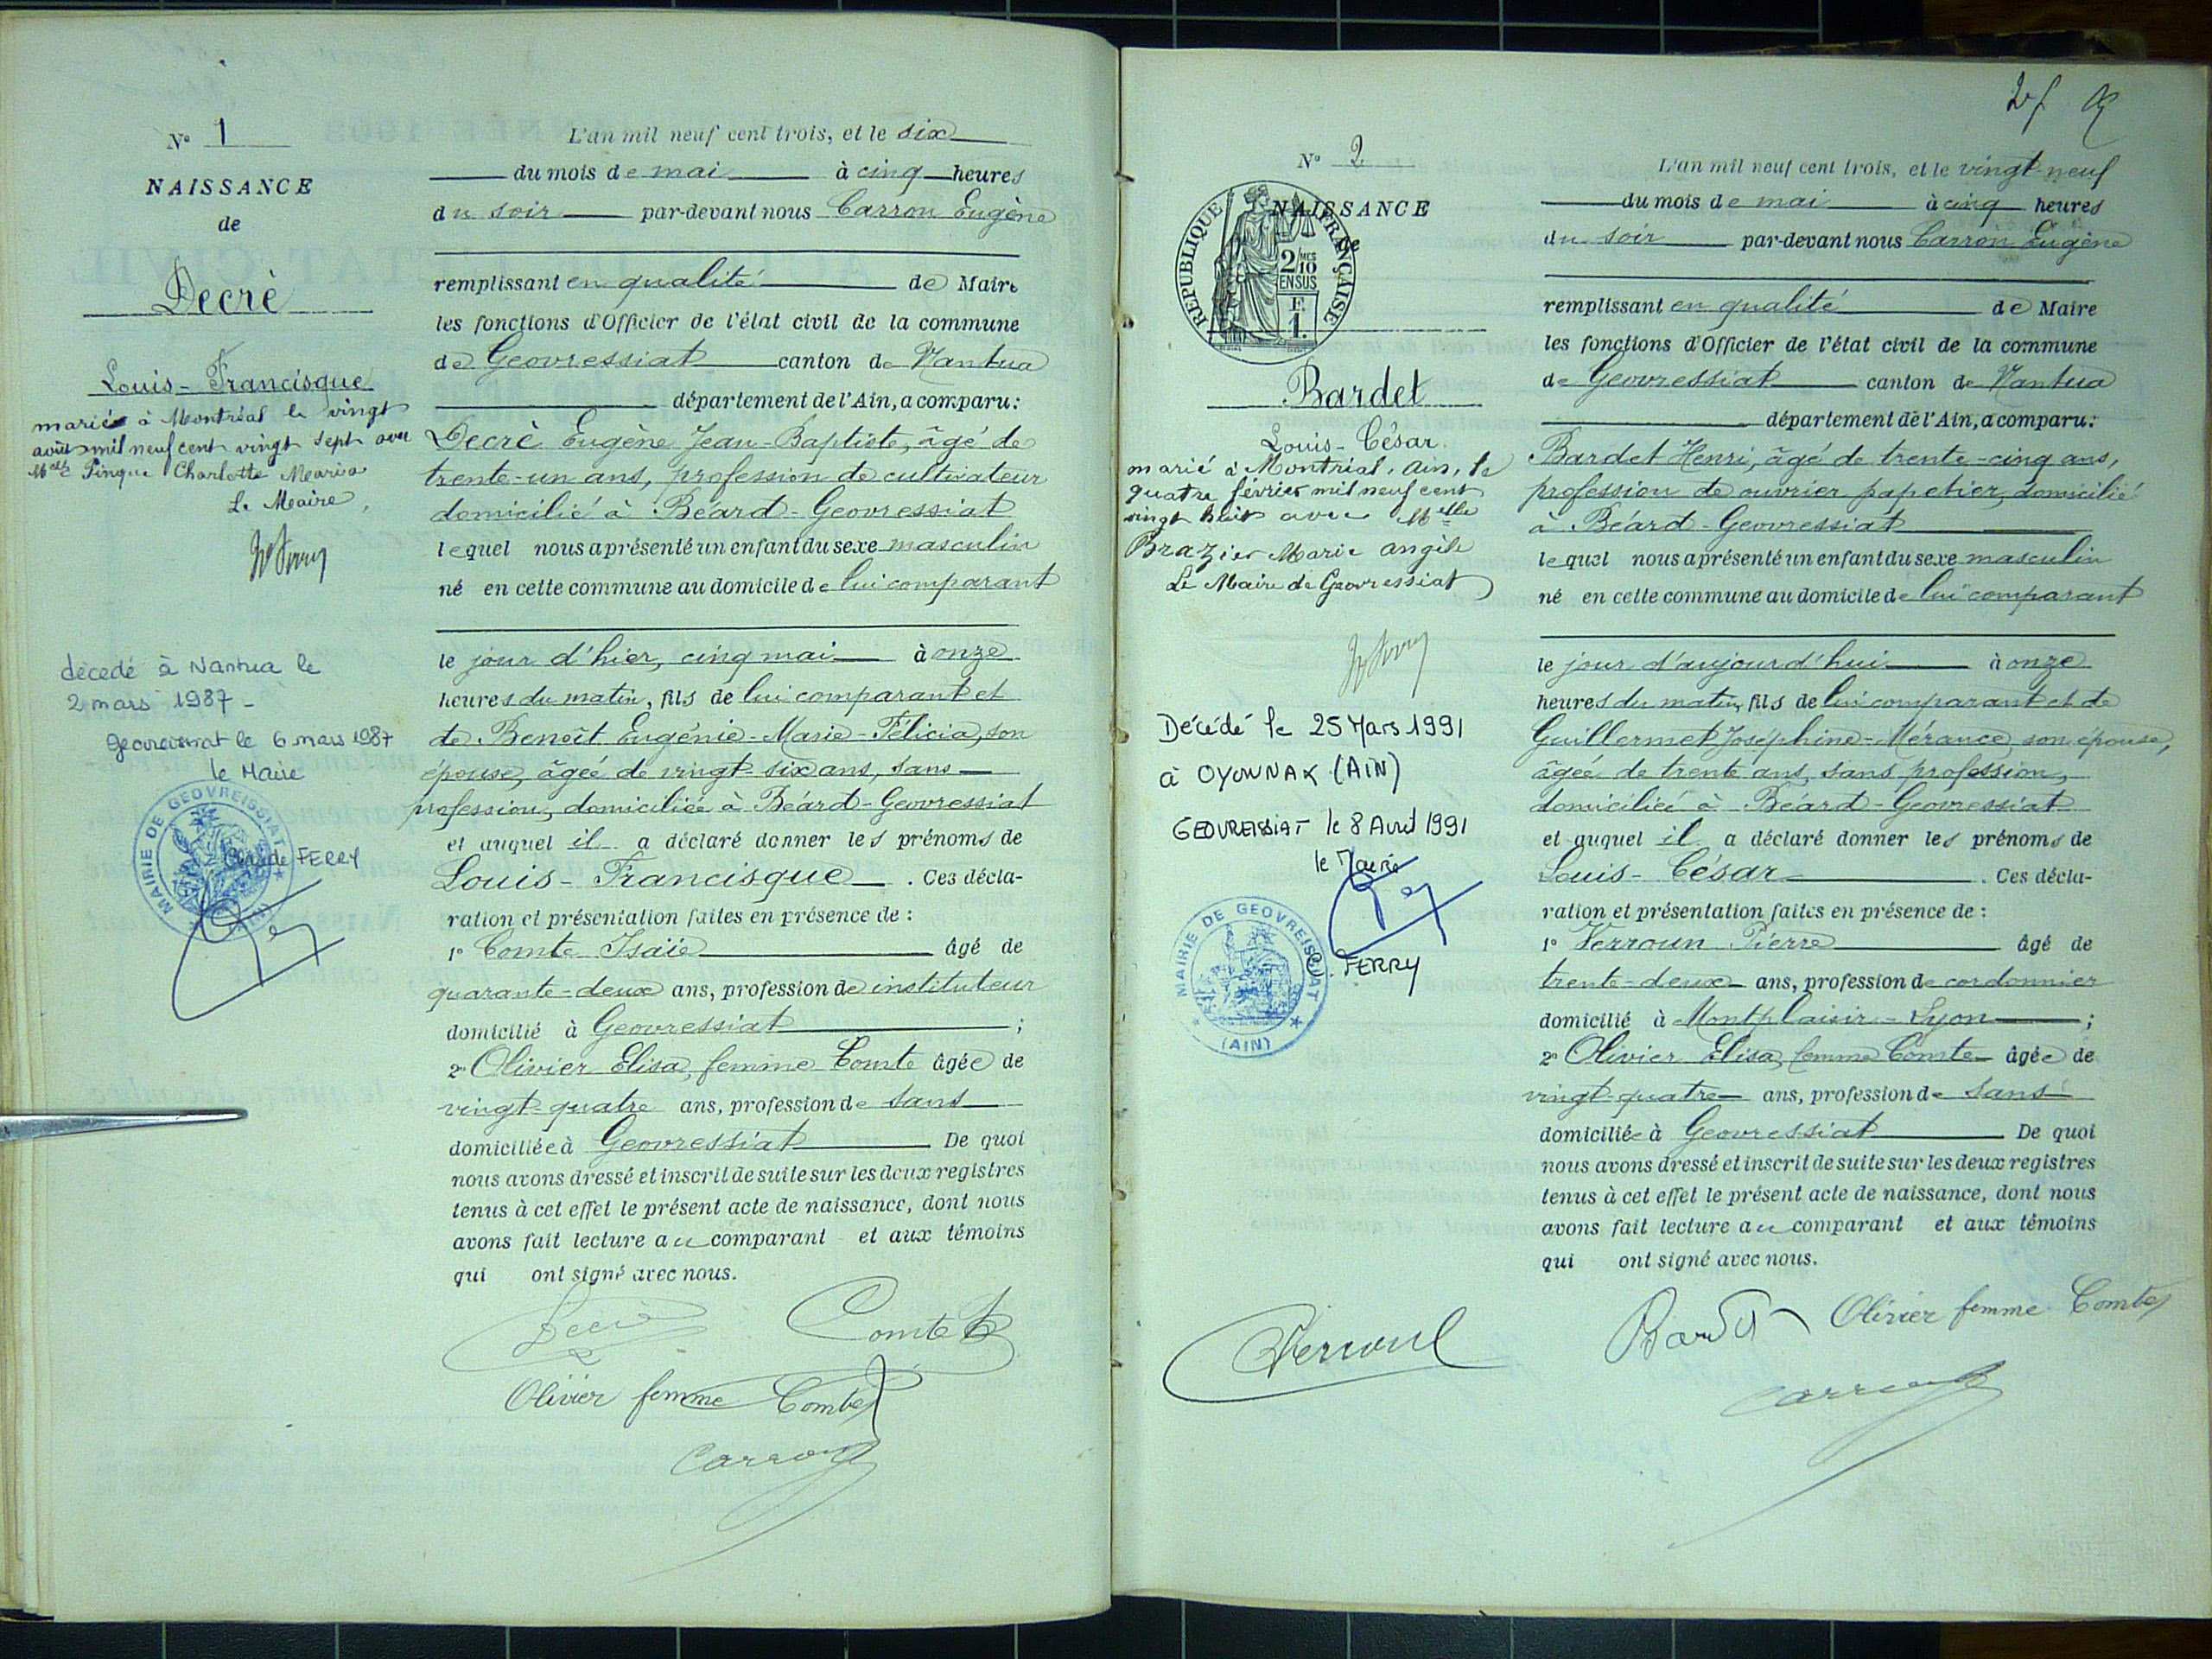 N° 1
NAISSANCE
de
Decrè
Louis-Francisque
marié à Montréal le vingt
août mil neuf cent vingt sept avec
Melle Pinque Charlotte Maria
Le Maire
décédé à Nantua le
2 mars 1987 -
Geovreissiat le 6 mars 1987
le Maire
MAIRIE DE GEOVREISSIAT
(AIN)
Claude FERRY
L'an mil neuf cent trois, et le six
du mois de mai à cinq heures
du soir par-devant nous Carron Eugène
remplissant en qualité de Maire
les fonctions d'Officier de l'état civil de la commune
de Geovressiat canton de Nantua
département de l'Ain, a comparu:
Decrè Eugène Jean-Baptiste, âgé de
trente-un ans, profession de cultivateur
domicilié à Béard-Geovressiat
lequel nous a présenté un enfant du sexe masculin
né en cette commune au domicile de lui comparant
le jour d'hier, cinq mai à onze
heures du matin, fils de lui comparant et
de Benoît Eugénie-Marie-Félicia, son
épouse, âgée de vingt-six ans, sans
profession, domiciliée à Béard-Geovressiat
et auquel il a déclaré donner les prénoms de
Louis-Francisque. Ces décla-
ration et présentation faites en présence de :
1° Comte Isaïe âgé de
quarante-deux ans, profession de instituteur
domicilié à Geovressiat ;
2° Olivier Elisa, femme Comte âgée de
vingt-quatre ans, profession de sans
domiciliée à Geovressiat De quoi
nous avons dressé et inscrit de suite sur les deux registres
tenus à cet effet le présent acte de naissance, dont nous
avons fait lecture au comparant et aux témoins
qui ont signé avec nous.
Decrè Comte
Olivier femme Comte
Carron
2f
N° 2
NAISSANCE
de
REPUBLIQUE FRANÇAISE
2/10 MES
EN SUS
F.
1.
Bardet
Louis-César
marié à Montréal, Ain, le
quatre février mil neuf cent
vingt huit avec Melle
Brazier Marie Angèle
Le Maire de Geovressiat
Décédé le 25 Mars 1991
à OYONNAX (AIN)
GEOVREISSIAT le 8 Avril 1991
le Maire
MAIRIE DE GEOVREISSIAT
(AIN)
C. FERRY
L'an mil neuf cent trois, et le vingt-neuf
du mois de mai à cinq heures
du soir par-devant nous Carron Eugène
remplissant en qualité de Maire
les fonctions d'Officier de l'état civil de la commune
de Geovressiat canton de Nantua
département de l'Ain, a comparu:
Bardet Henri, âgé de trente-cinq ans,
profession de ouvrier papetier, domicilié
à Béard-Geovressiat
lequel nous a présenté un enfant du sexe masculin
né en cette commune au domicile de lui comparant
le jour d'aujourd'hui à onze
heures du matin, fils de lui comparant et de
Guillermet Joséphine-Mérance, son épouse,
âgée de trente ans, sans profession,
domiciliée à Béard-Geovressiat
et auquel il a déclaré donner les prénoms de
Louis-César. Ces décla-
ration et présentation faites en présence de :
1° Verroun Pierre âgé de
trente-deux ans, profession de cordonnier
domicilié à Montplaisir-Lyon ;
2° Olivier Elisa, femme Comte âgée de
vingt-quatre ans, profession de sans
domiciliée à Geovressiat De quoi
nous avons dressé et inscrit de suite sur les deux registres
tenus à cet effet le présent acte de naissance, dont nous
avons fait lecture au comparant et aux témoins
qui ont signé avec nous.
Bardet Olivier femme Comte
Carron